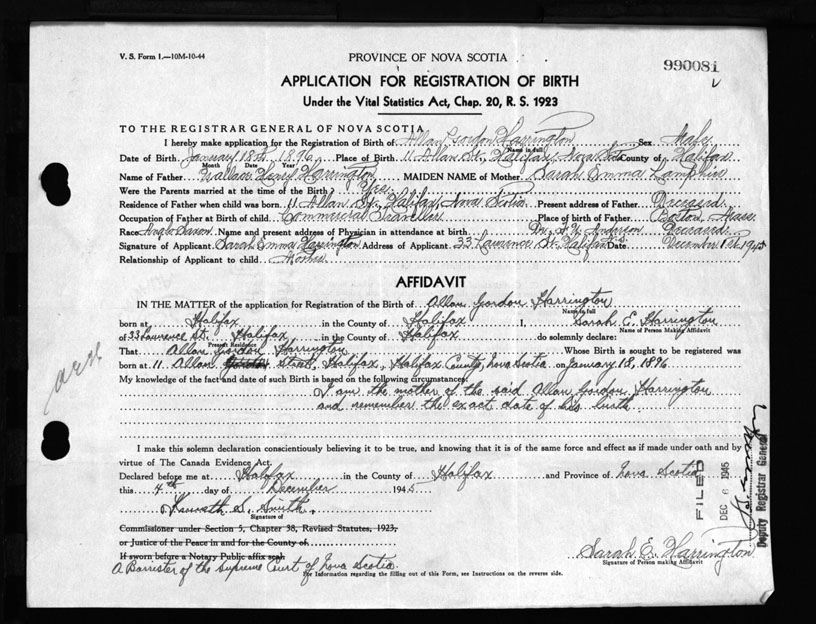 V. S. Form 1.—10M-10-44
PROVINCE OF NOVA SCOTIA
990081
APPLICATION FOR REGISTRATION OF BIRTH
Under the Vital Statistics Act, Chap. 20, R. S. 1923
TO THE REGISTRAR GENERAL OF NOVA SCOTIA
I hereby make application for the Registration of Birth of Allan Gordon Harrington Sex Male
Name in full
Date of Birth January 18th, 1896 Place of Birth 11 Allan St., Halifax, Nova Scotia County of Halifax
Month Date Year
Name of Father Wallace Henry Harrington MAIDEN NAME of Mother Sarah Emma
Were the Parents married at the time of the Birth? Yes
Residence of Father when child was born 11 Allan St. Halifax, Nova Scotia Present address of Father Deceased
Occupation of Father at Birth of child Commercial Traveller Place of birth of Father Boston, Mass.
Race Anglo Saxon Name and present address of Physician in attendance at birth Dr. Anderson Deceased
Signature of Applicant Sarah Emma Harrington Address of Applicant 33 Lawrence St. Halifax Date December 1945
Relationship of Applicant to child Mother
AFFIDAVIT
IN THE MATTER of the application for Registration of the Birth of Allan Gordon Harrington
Name in full
born at Halifax in the County of Halifax I, Sarah E. Harrington
Name of Person Making Affidavit
of 33 Lawrence St. Halifax in the County of Halifax do solemnly declare:
Present Residence
That Allan Gordon Harrington Whose Birth is sought to be registered was
born at 11 Allan Street, Halifax, Halifax County, Nova Scotia on January 18, 1896
My knowledge of the fact and date of such Birth is based on the following circumstances:
I am the mother of the said Allan Gordon Harrington
and remember the exact date of his birth
I make this solemn declaration conscientiously believing it to be true, and knowing that it is of the same force and effect as if made under oath and by
virtue of The Canada Evidence Act.
Declared before me at Halifax in the County of Halifax and Province of Nova Scotia
this 4th day of December 1945
Kenneth S. Smith
Signature of
Commissioner under Section 5, Chapter 38, Revised Statutes, 1923,
or Justice of the Peace in and for the County of
If sworn before a Notary Public affix seal
A Barrister of the Supreme Court of Nova Scotia.
Sarah E. Harrington
Signature of Person making Affidavit
For Information regarding the filling out of this Form, see Instructions on the reverse side.
FILED
DEC 6 1945
Deputy Registrar General